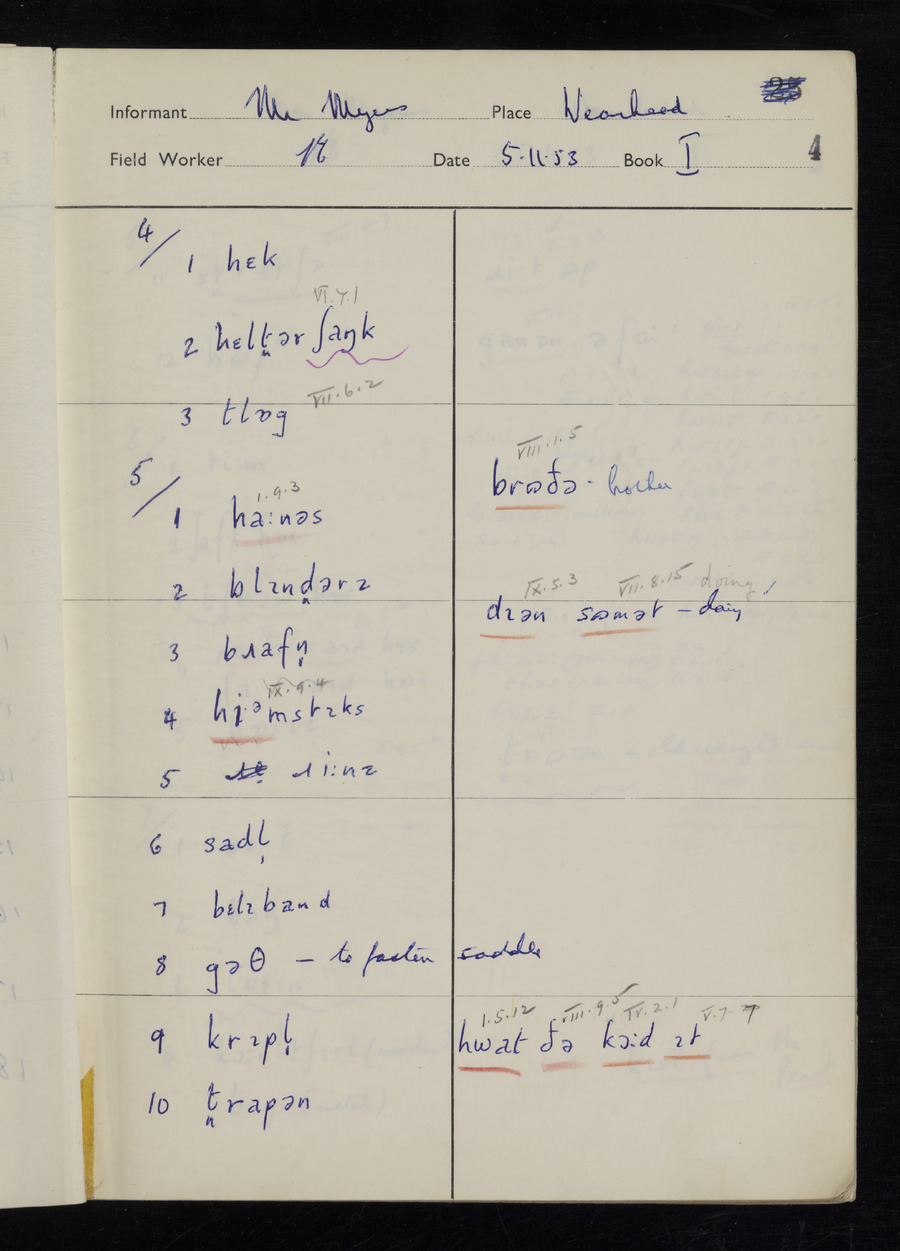 Informant Mr Myers Place Wearhead
Field Worker Date 5.11.53 Book I 4
4/
1 hɛk
VI.7.1
2 hɛlt̪ər ʃaŋk
3 tlɒg VII.6.2
5/
1.9.3
1 ha:nəs
2 blɪnd̪ərz
3 bʀafn̩
IX.9.4
4 hj·ᵊmstɪks
5 ɹi:nz
6 sadl̩
7 bɛlɪband
8 gəθ – to fasten saddle
9 krɪpl̩
10 t̪rapən
VIII.1.5
brɷðə - brother
IX.5.3 VII.8.15 doing
dɪən sɷmət –
1.5.12 VIII.9.5 IV.2.1 V.7.
hwat ðə kɔ:d ɪt